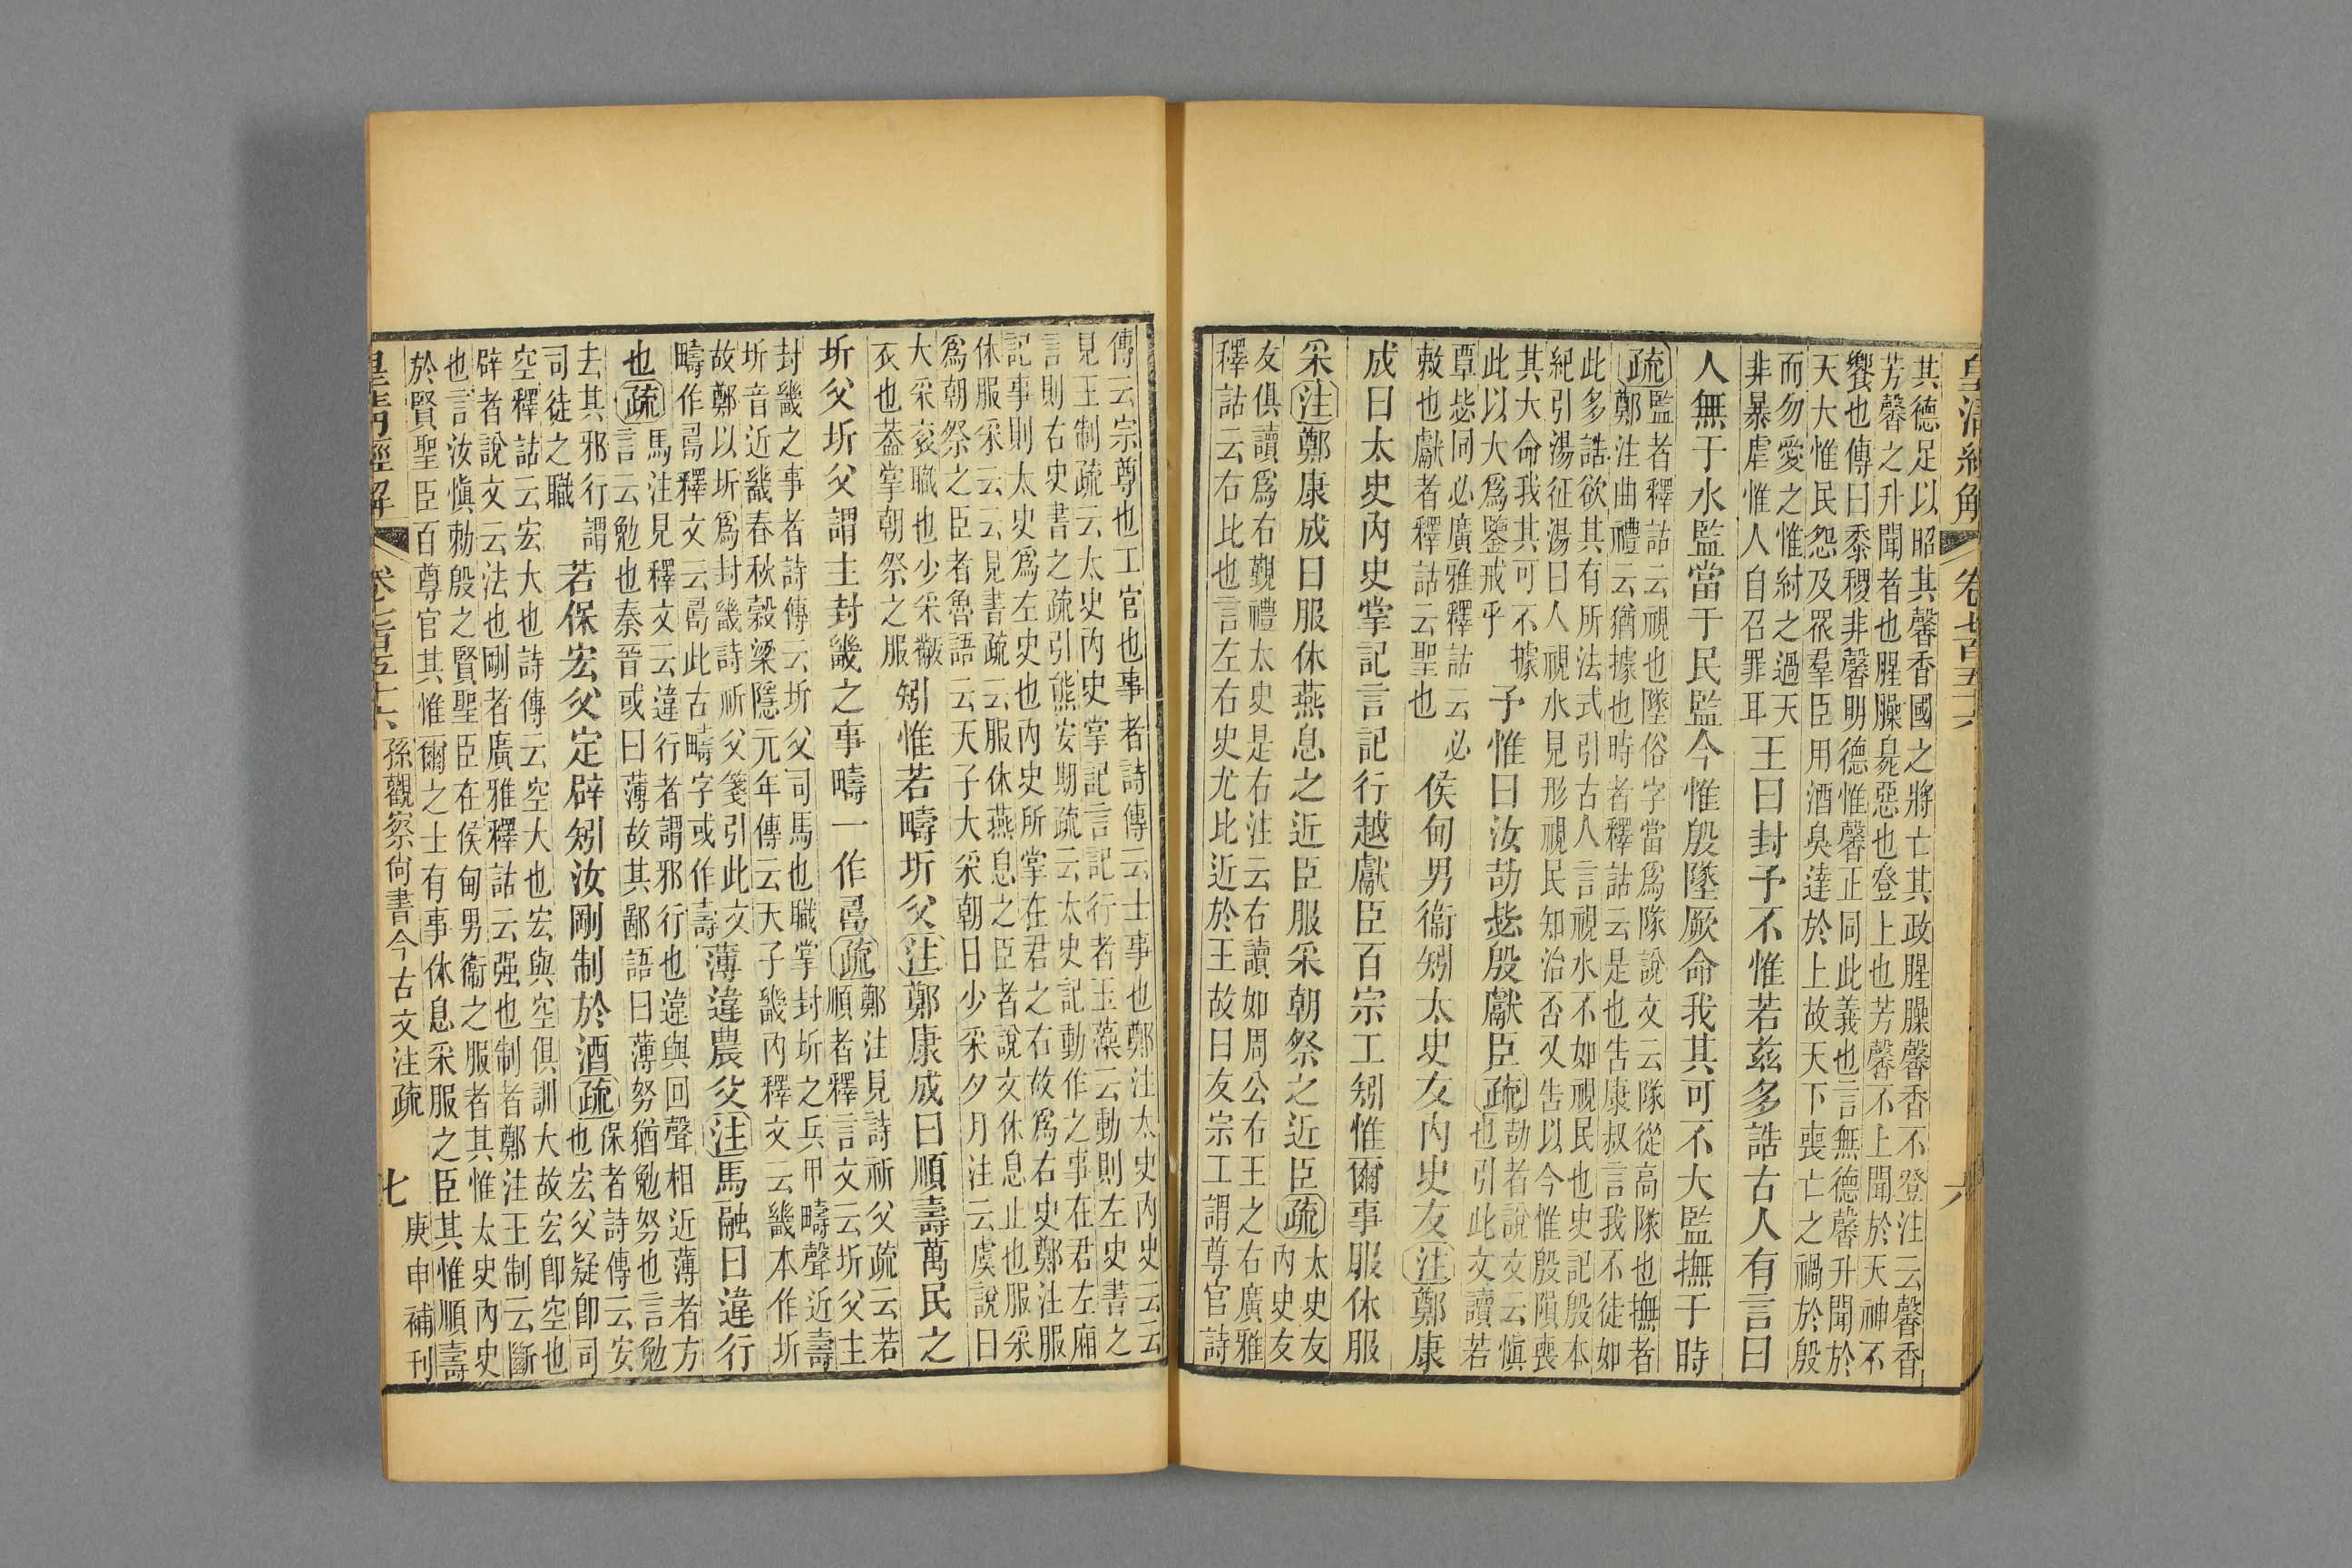 皇清經解 卷七百五十六 六
其德足以昭其馨香國之將亡其政腥臊馨香不登注云馨香
芳馨之升聞者也腥臊臭惡也登上也芳馨不上聞於天神不
饗也傳曰黍稷非馨明德惟馨正同此義也言無德馨升聞於
天大惟民怨及眾羣臣用酒臭達於上故天下喪亡之禍於殷
而勿愛之惟紂之過天
非暴虐惟人自召罪耳
王曰封予不惟若茲多誥古人有言曰
人無于水監當于民監今惟殷墜厥命我其可不大監撫于時
疏
監者釋詁云視也墜俗字當爲隊說文云隊從高隊也撫者
鄭注曲禮云猶據也時者釋詁云是也告康叔言我不徒如
此多誥欲其有所法式引古人言視水不如視民也史記殷本
紀引湯征湯曰人視水見形視民知治否又告以今惟殷隕喪
其大命我其可不據
此以大爲鑒戒乎
予惟曰汝劼毖殷獻臣疏
劼者說文云愼
也引此文讀若
覃毖同必廣雅釋詁云必
敕也獻者釋詁云聖也
侯甸男衞矧太史友內史友注鄭康
成曰太史內史掌記言記行越獻臣百宗工矧惟爾事服休服
采注鄭康成曰服休燕息之近臣服采朝祭之近臣疏
太史友
內史友
友俱讀爲右覲禮太史是右注云右讀如周公右王之右廣雅
釋詁云右比也言左右史尤比近於王故曰友宗工謂尊官詩
傳云宗尊也工官也事者詩傳云士事也鄭注太史內史云云
見王制疏云太史內史掌記言記行者玉藻云動則左史書之
言則右史書之疏引熊安期疏云太史記動作之事在君左廂
記事則太史爲左史也內史所掌在君之右故爲右史鄭注服
休服采云云見書疏云服休燕息之臣者說文休息止也服采
爲朝祭之臣者魯語云天子大采朝日少采夕月注云虞說曰
大采袞職也少采黻
衣也葢掌朝祭之服
矧惟若疇圻父注鄭康成曰順壽萬民之
圻父圻父謂主封畿之事疇一作𠷎疏
鄭注見詩祈父疏云若
順者釋言文云圻父主
封畿之事者詩傳云圻父司馬也職掌封圻之兵甲疇聲近壽
圻音近畿春秋穀梁隱元年傳云天子畿內釋文云畿本作圻
故鄭以圻爲封畿詩祈父箋引此文
疇作𠷎釋文云𠷎此古疇字或作壽
薄違農父注馬融曰違行
也疏
馬注見釋文云違行者謂邪行也違與回聲相近薄者方
言云勉也秦晉或曰薄故其鄙語曰薄努猶勉努也言勉
去其邪行謂
司徒之職
若保宏父定辟矧汝剛制於酒疏
保者詩傳云安
也宏父疑卽司
空釋詁云宏大也詩傳云空大也宏與空俱訓大故宏卽空也
辟者說文云法也剛者廣雅釋詁云强也制者鄭注王制云斷
也言汝愼勅殷之賢聖臣在侯甸男衞之服者其惟太史內史
於賢聖臣百尊官其惟爾之士有事休息采服之臣其惟順壽
皇清經解 卷七百五十六 孫觀察尙書今古文注疏 七 庚申補刊